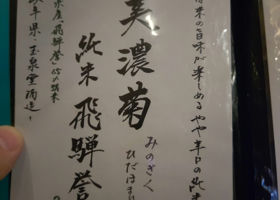 米の旨味が楽しめる やや辛口の純米
美濃菊
みのぎく
純米 飛騨誉
ひだほま
米産「飛騨誉」60%精米
阜県 玉泉堂酒造